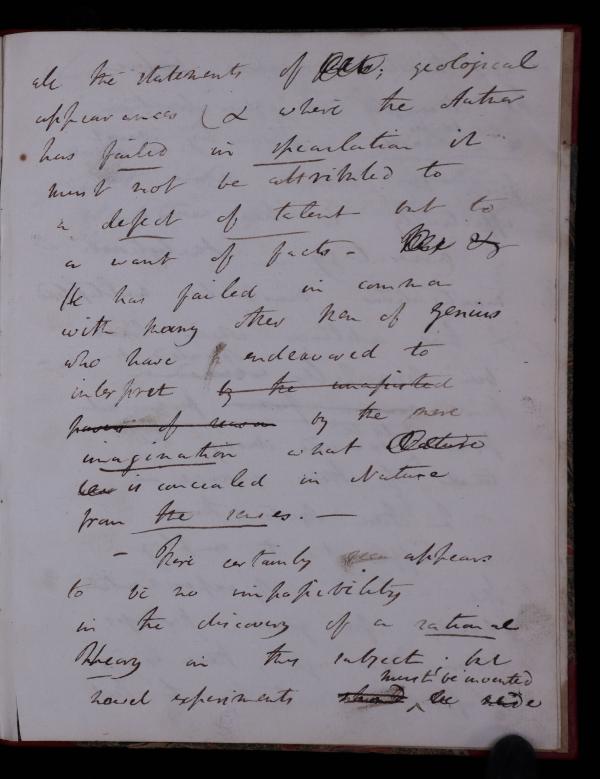 all the statements of geological
appearances (& where the Author
has failed in speculation it
must not be attributed to
a defect of talent but to
a want of facts -
He has failed in common
with many other Men of genius
who have endeavoured to
interpret by the unassisted
powers of reason by the mere
imagination what Nature
is concealed in Nature
from the senses. —
- There certainly appears
to be no impossibility
in the discovery of a rational
theory in this subject; but
must be invented
novel experiments should be made